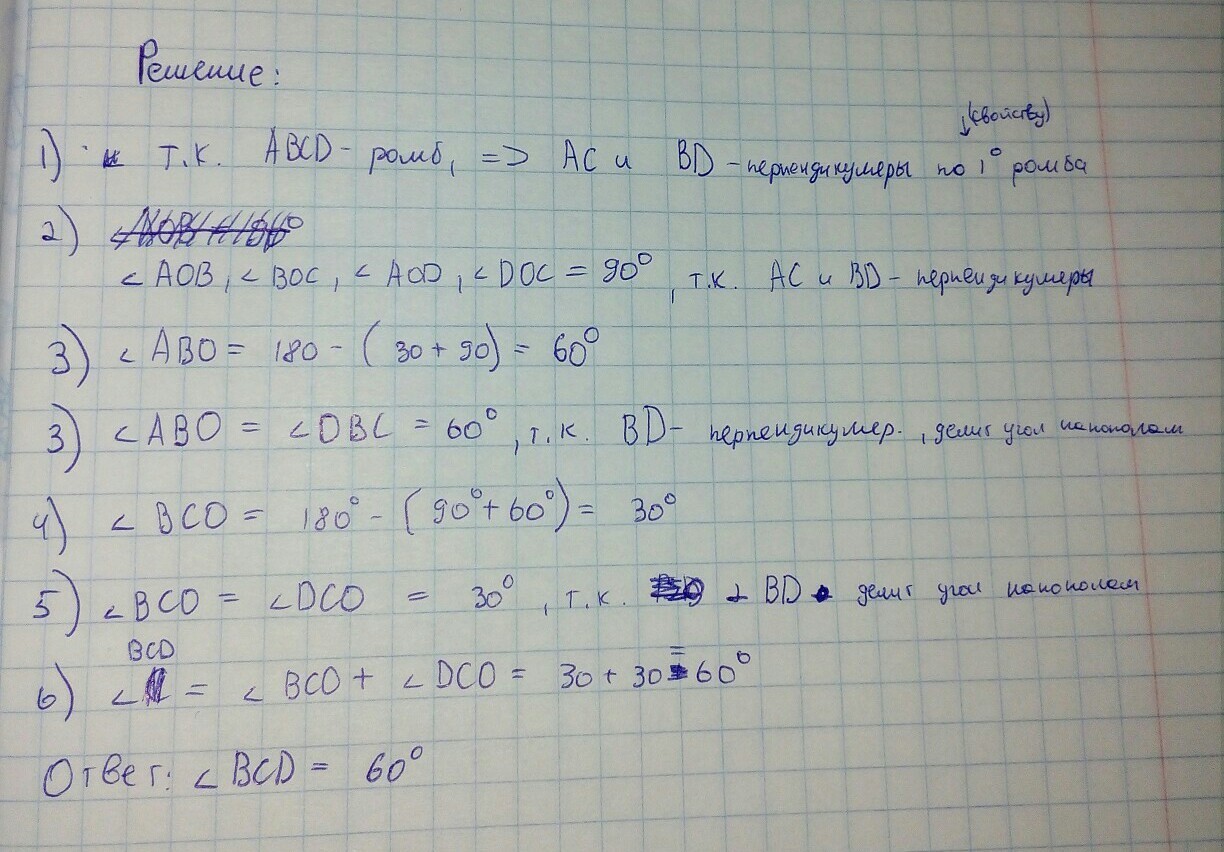 Решение:
(свойству)
1) т.к. ABCD - ромб, => AC и BD - перпендикуляры по 1° ромба
2)
∠AOB, ∠BOC, ∠AOD, ∠DOC = 90°, т.к. AC и BD - перпендикуляры
3) ∠ABO = 180 - (30 + 90) = 60°
3) ∠ABO = ∠DBC = 60°, т.к. BD - перпендикуляр., делит угол напополам
4) ∠BCO = 180° - (90° + 60°) = 30°
5) ∠BCO = ∠DCO = 30°, т.к. ⊥ BD делит угол напополам
BCD
6) ∠ = ∠BCO + ∠DCO = 30 + 30 = 60°
Ответ: ∠BCD = 60°